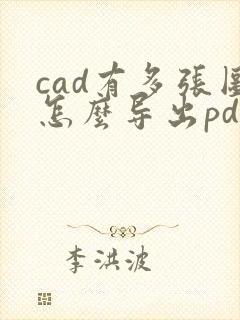 cad有多張圖
怎麼导出pd
李洪波